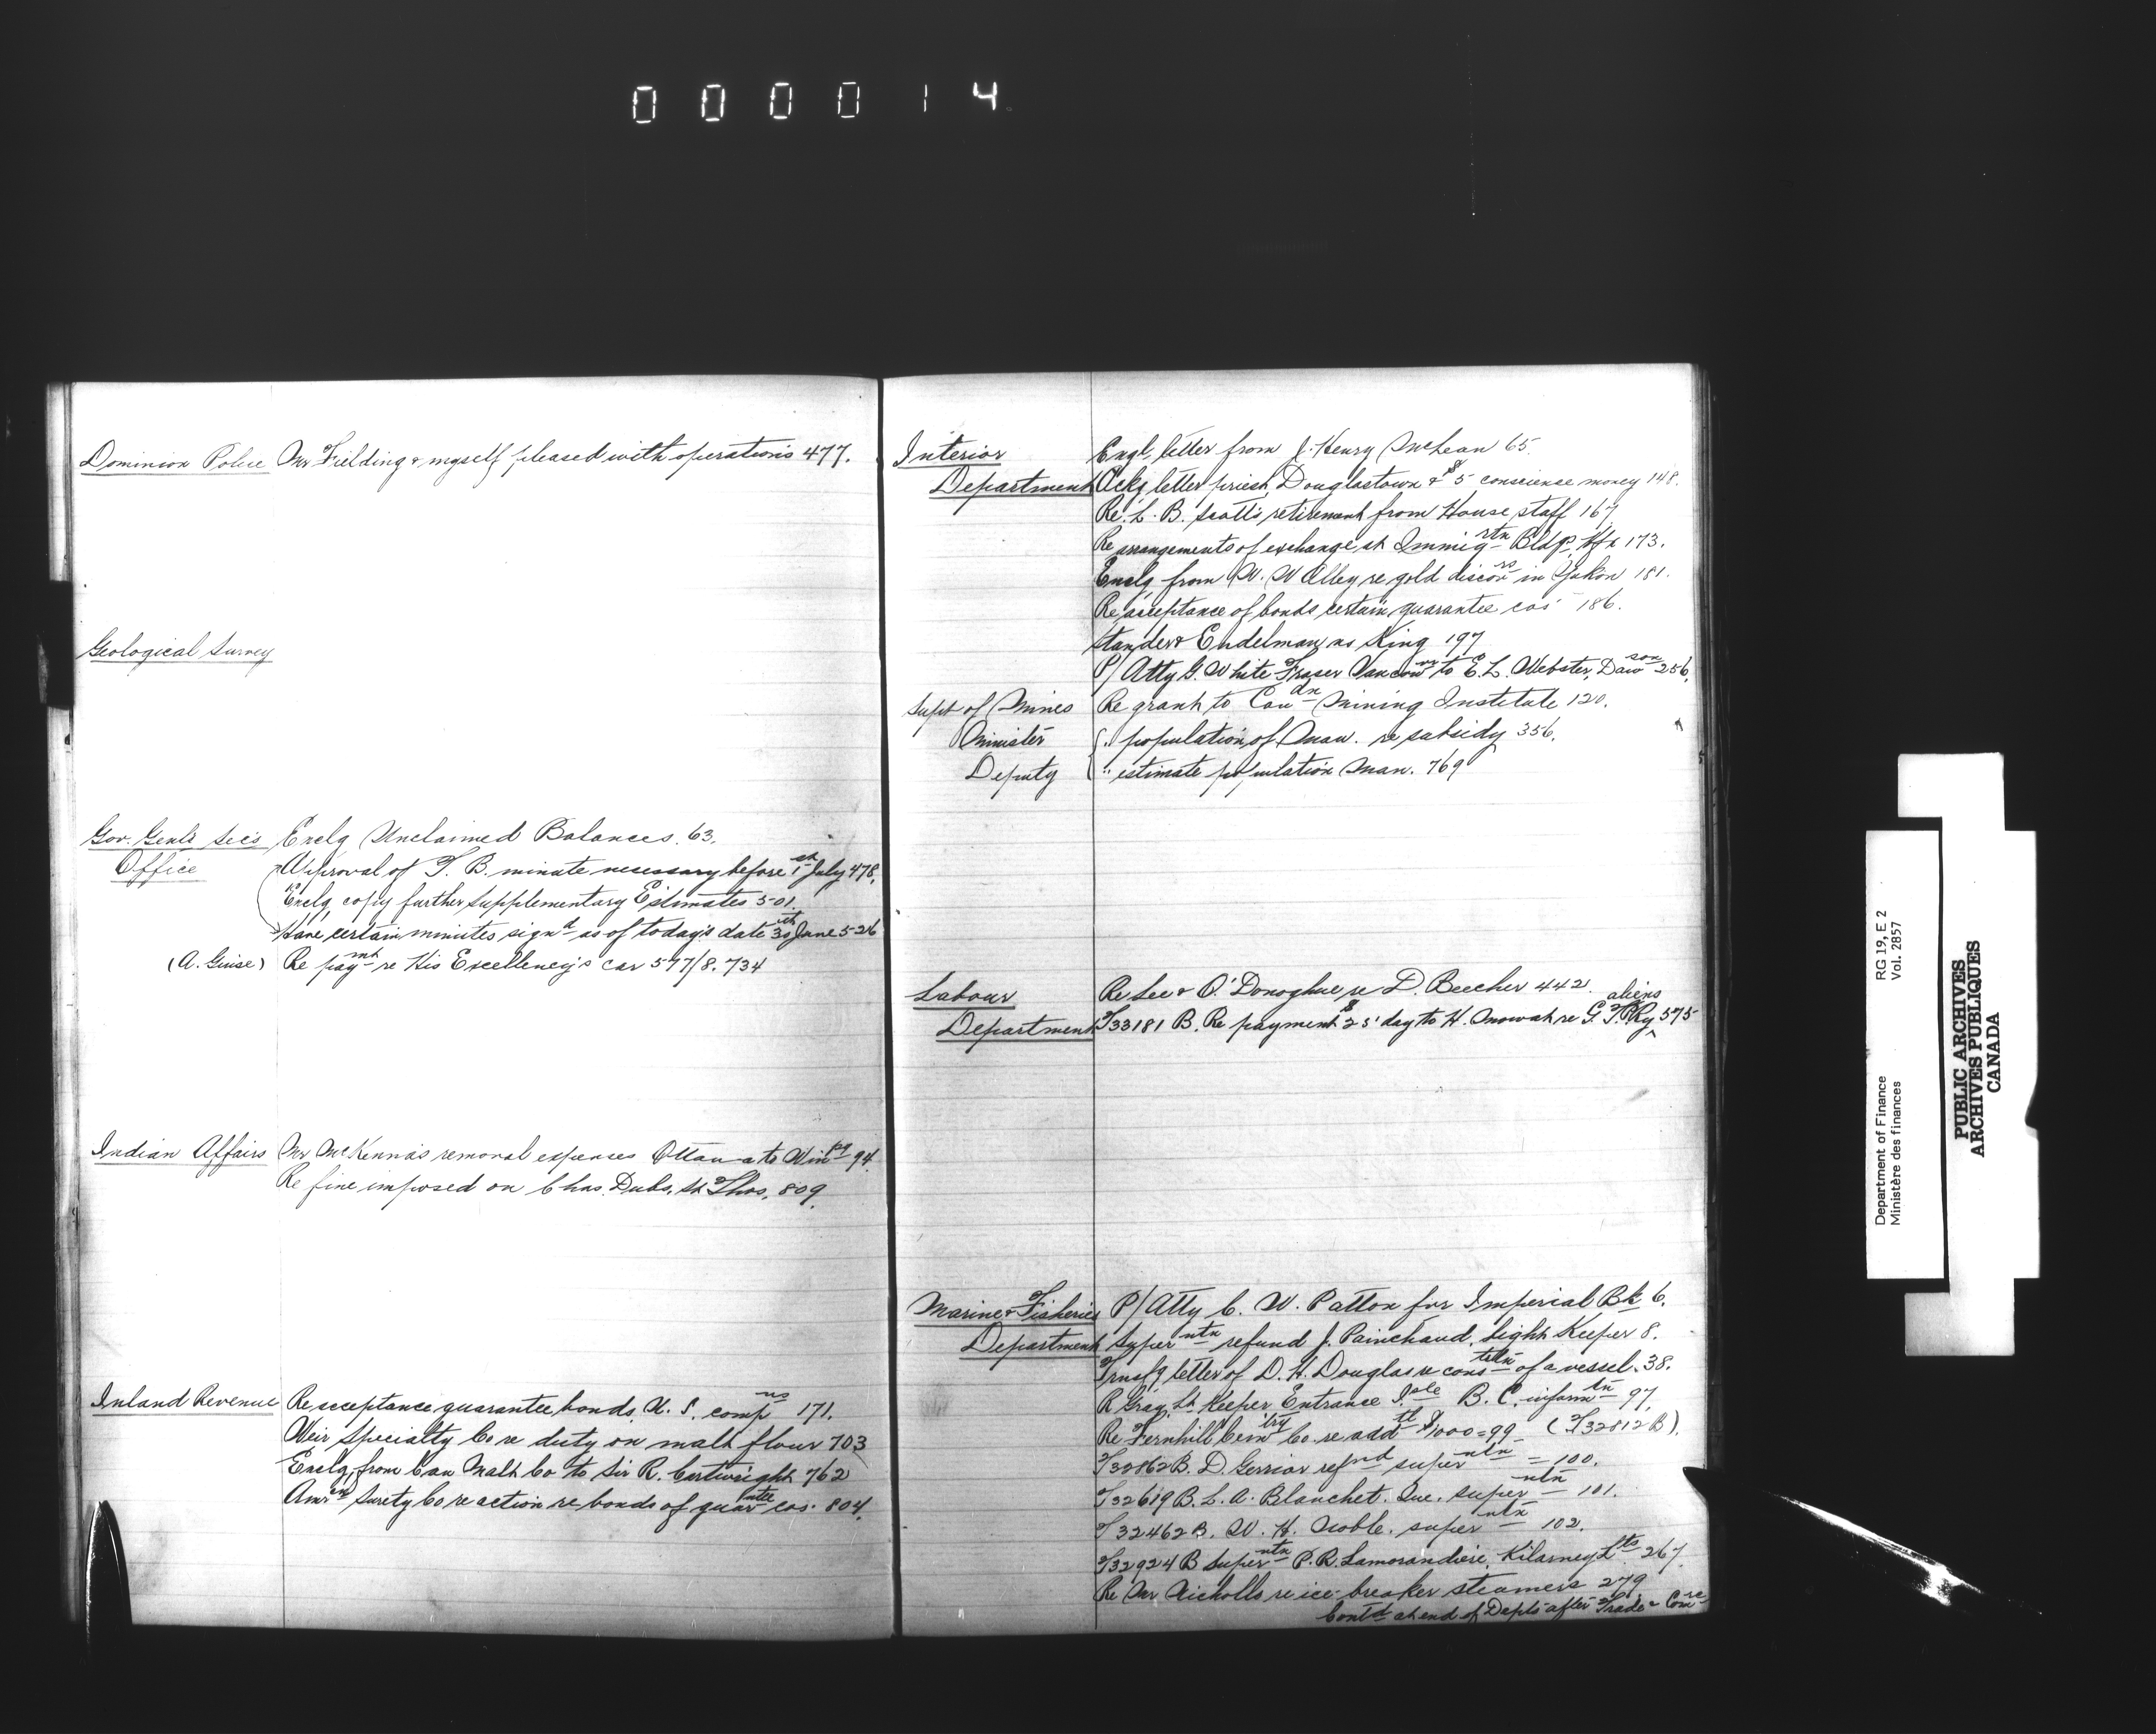 000014
Dominion Police Mr Fielding & myself pleased with operations 477.
Geological Survey
Gov. Genl's Sec's Enclg Unclaimed Balances. 63.
Office Approval of T. B. minute necessary before 1st July 478.
Enclg copy further Supplementary Estimates 501.
Have certain minutes signd as of today's date 30th June 526
(A. Guise) Re paymt re His Excellency's car 577/8. 734
Indian Affairs Mr McKenna's removal expenses Ottawa to Winpg 94.
Re fine imposed on Chas. Dubs, St Thos. 809.
Inland Revenue Re acceptance guarantee bonds U. S. compns 171.
Weir Specialty Co re duty on malt flour 703
Enclg from Can Malt Co to Sir R. Cartwright 762
Amren Surety Co re action re bonds of guarntee cos. 804.
Interior Engl, letter from J. Henry McLean 65.
Department Ackg letter priest, Douglastown & $5 consciense money 148.
Re. L. B. Scott's retirement from House staff 167
Re arrangements of exchange at Immigrtn Bldgs. Hfx 173.
Enclg from W. W Alley re gold discovrs in Yukon 181.
Re acceptance of bonds certain guarantee cos' 186.
Stander & Endelman vs King 197
P/Atty G. White Fraser Vancouvr to E. L. Webster, Dawson 256.
Supt of Mines Re grant to Candn Mining Institute 120.
Minister " population of Man. re subsidy 356.
Deputy " estimate population Man. 769
Labour Re Lee & O'Donoghue re D. Beecher 442.
Department T33181 B. Re payment $25 day to H. Mowat re G.T.P.Ry aliens 575
Marine & Fisheries P/Atty C. W. Patton for Imperial Bk 6.
Department Superntn refund J. Painchaud, Light Keeper 8.
Trnsfg letter of D. H. Douglas re constctn of a vessel. 38.
R Gray, Lt Keeper Entrance Isle B. C. informtn 97.
Re Fernhill Cemtry Co. re addtl $1000 = 99 (T32812 B).
T32862 B. D. Gerrior refnd superntn = 100.
T32619 B. L. A. Blanchet. Que. superntn 101.
T32462 B. W. H. Noble. superntn 102.
T32924 B Superntn P. R. Lamorandiere, Kilarney Lts 267.
Re Mr Nicholls re ice-breaker steamers 279.
Contd at end of Depts after Trade & Comrce
Department of Finance RG 19, E 2
Ministère des finances Vol. 2857
PUBLIC ARCHIVES
ARCHIVES PUBLIQUES
CANADA